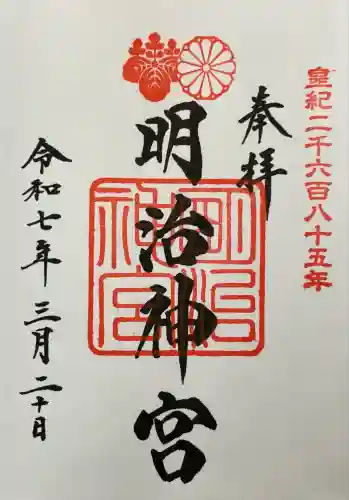 皇紀二千六百八十五年
奉拝
明治神宮
明治神宮
令和七年三月二十日